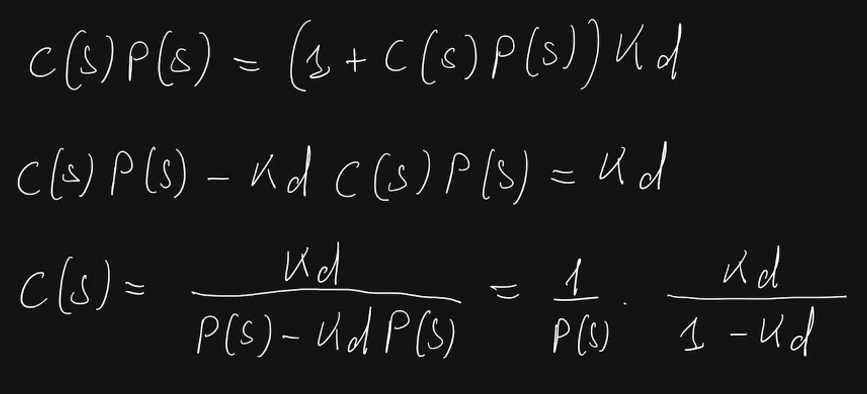 C(s)P(s) = (1 + C(s)P(s))Kd
C(s)P(s) - Kd C(s)P(s) = Kd
C(s) = Kd / (P(s) - Kd P(s)) = 1/P(s) · Kd / (1 - Kd)